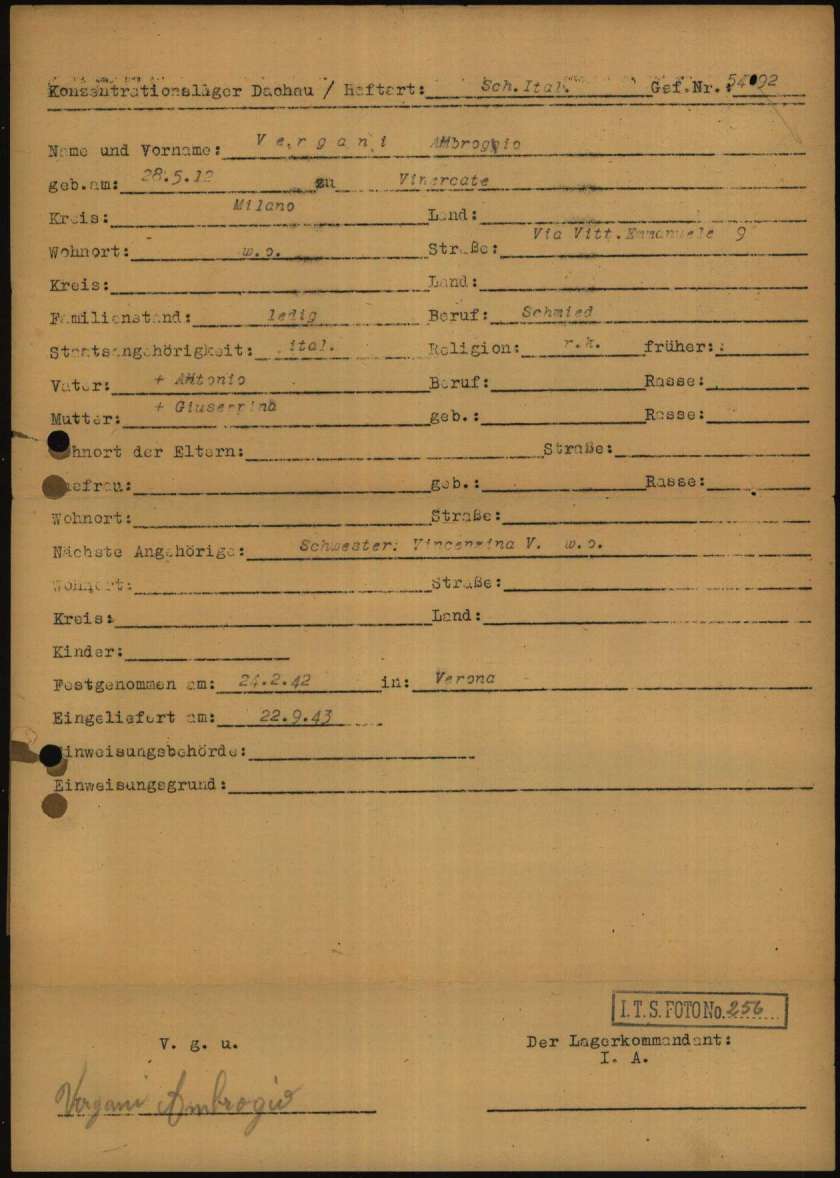 Konzentrationslager Dachau / Haftart: Sch.Ital. Gef.Nr.: 54092
Name und Vorname: Vergani Ambroggio
geb.am: 28.5.12 zu Vimercate
Kreis: Milano Land:
Wohnort: w.o. Straße: Via Vitt.Emmanuele 9
Kreis: Land:
Familienstand: ledig Beruf: Schmied
Staatsangehörigkeit: ital. Religion: r.k. früher:
Vater: + Antonio Beruf: Rasse:
Mutter: + Giuseppina geb.: Rasse:
Wohnort der Eltern: Straße:
Ehefrau: geb.: Rasse:
Wohnort: Straße:
Nächste Angehörige: Schwester: Vincenzina V. w.o.
Wohnort: Straße:
Kreis: Land:
Kinder:
Festgenommen am: 24.2.42 in: Verona
Eingeliefert am: 22.9.43
Einweisungsbehörde:
Einweisungsgrund:
I.T.S. FOTO No. 256
V. g. u. Der Lagerkommandant:
I. A.
Vergani Ambrogio